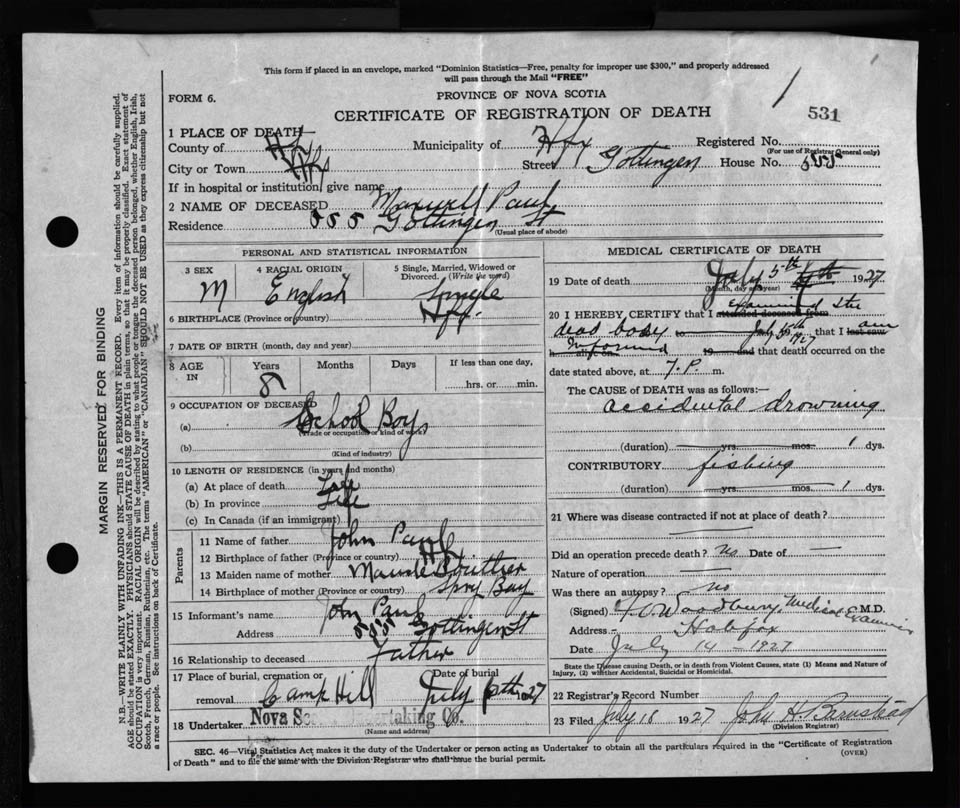 This form if placed in an envelope, marked "Dominion Statistics—Free, penalty for improper use $300," and properly addressed
will pass through the Mail "FREE"
FORM 6.
PROVINCE OF NOVA SCOTIA
CERTIFICATE OF REGISTRATION OF DEATH
531
1 PLACE OF DEATH
County of Hfx Municipality of Hfx Registered No.
(For use of Registrar General only)
City or Town Hfx Street Gottingen House No. 555
If in hospital or institution, give name
2 NAME OF DECEASED Maxwell Paul
Residence 555 Gottingen St
(Usual place of abode)
PERSONAL AND STATISTICAL INFORMATION
3 SEX M
4 RACIAL ORIGIN English
5 Single, Married, Widowed or Divorced. (Write the word) Single
6 BIRTHPLACE (Province or country) Hfx.
7 DATE OF BIRTH (month, day and year)
8 AGE IN Years 8 Months Days If less than one day, hrs. or min.
9 OCCUPATION OF DECEASED
(a) School Boy
(Trade or occupation or kind of work)
(b)
(Kind of industry)
10 LENGTH OF RESIDENCE (in years and months)
(a) At place of death Life
(b) In province Life
(c) In Canada (if an immigrant)
Parents
11 Name of father John Paul
12 Birthplace of father (Province or country) Hfx.
13 Maiden name of mother Maude
14 Birthplace of mother (Province or country) Spry Bay
15 Informant's name John Paul
Address 555 Gottingen St
16 Relationship to deceased Father
17 Place of burial, cremation or removal Camp Hill
Date of burial July 1927
18 Undertaker Nova Undertaking Co.
(Name and address)
MEDICAL CERTIFICATE OF DEATH
19 Date of death July 5th 1927
(Month, day and year)
20 I HEREBY CERTIFY that I attended deceased from examined the
dead body to July 5th 1927 that I last saw am
h alive on informed 19 and that death occurred on the
date stated above, at 7.P. m.
The CAUSE of DEATH was as follows:—
accidental drowning
(duration) yrs. mos. 1 dys.
CONTRIBUTORY fishing
(duration) yrs. mos. 1 dys.
21 Where was disease contracted if not at place of death?
Did an operation precede death? no Date of —
Nature of operation
Was there an autopsy? no
(Signed) Woodbury, Medical Examiner M.D.
Address Halifax
Date July 14 - 1927
State the Disease causing Death, or in death from Violent Causes, state (1) Means and Nature of
Injury, (2) whether Accidental, Suicidal or Homicidal.
22 Registrar's Record Number
23 Filed July 16 1927 John H
(Division Registrar)
SEC. 46—Vital Statistics Act makes it the duty of the Undertaker or person acting as Undertaker to obtain all the particulars required in the "Certificate of Registration
of Death" and to file the same with the Division Registrar who shall issue the burial permit.
(OVER)
MARGIN RESERVED FOR BINDING
N.B.—WRITE PLAINLY WITH UNFADING INK—THIS IS A PERMANENT RECORD. Every item of information should be carefully supplied.
AGE should be stated EXACTLY. PHYSICIANS should STATE CAUSE OF DEATH in plain terms, so that it may be properly classified. Exact statement of
OCCUPATION is very important. RACIAL ORIGIN will be described by stating to what people or tongue the deceased person belonged, whether English, Irish,
Scotch, French, German, Russian, Ruthenian, etc. The terms "AMERICAN" or "CANADIAN" SHOULD NOT BE USED as they express citizenship but not
a race or people. See instructions on back of Certificate.